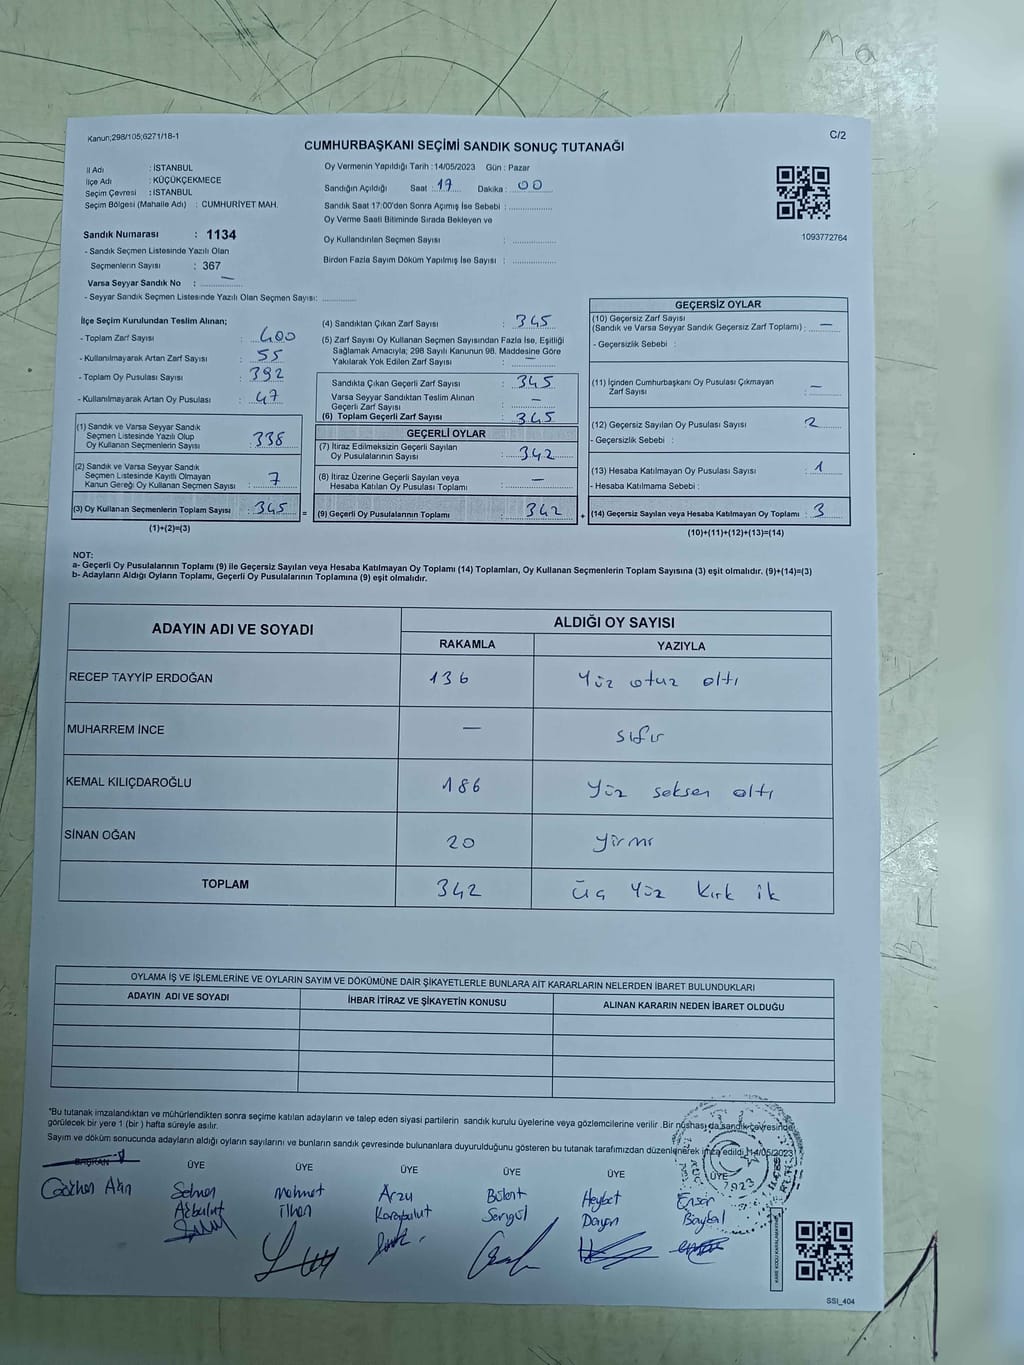 Kanun;298/105;6271/18-1
C/2
CUMHURBAŞKANI SEÇİMİ SANDIK SONUÇ TUTANAĞI
İl Adı : İSTANBUL
İlçe Adı : KÜÇÜKÇEKMECE
Seçim Çevresi : İSTANBUL
Seçim Bölgesi (Mahalle Adı) : CUMHURİYET MAH.
Sandık Numarası : 1134
- Sandık Seçmen Listesinde Yazılı Olan
Seçmenlerin Sayısı : 367
Varsa Seyyar Sandık No : —
- Seyyar Sandık Seçmen Listesinde Yazılı Olan Seçmen Sayısı:
Oy Vermenin Yapıldığı Tarih : 14/05/2023 Gün : Pazar
Sandığın Açıldığı Saat : 17 Dakika : 00
Sandık Saat 17:00'den Sonra Açımış İse Sebebi :
Oy Verme Saati Bitiminde Sırada Bekleyen ve
Oy Kullandırılan Seçmen Sayısı :
Birden Fazla Sayım Döküm Yapılmış İse Sayısı :
1093772764
İlçe Seçim Kurulundan Teslim Alınan;
- Toplam Zarf Sayısı : 400
- Kullanılmayarak Artan Zarf Sayısı : 55
- Toplam Oy Pusulası Sayısı : 392
- Kullanılmayarak Artan Oy Pusulası : 47
(1) Sandık ve Varsa Seyyar Sandık
Seçmen Listesinde Yazılı Olup
Oy Kullanan Seçmenlerin Sayısı : 338
(2) Sandık ve Varsa Seyyar Sandık
Seçmen Listesinde Kayıtlı Olmayan
Kanun Gereği Oy Kullanan Seçmen Sayısı : 7
(3) Oy Kullanan Seçmenlerin Toplam Sayısı : 345
(1)+(2)=(3)
=
(4) Sandıktan Çıkan Zarf Sayısı : 345
(5) Zarf Sayısı Oy Kullanan Seçmen Sayısından Fazla İse, Eşitliği
Sağlamak Amacıyla; 298 Sayılı Kanunun 98. Maddesine Göre
Yakılarak Yok Edilen Zarf Sayısı : —
Sandıkta Çıkan Geçerli Zarf Sayısı : 345
Varsa Seyyar Sandıktan Teslim Alınan
Geçerli Zarf Sayısı : —
(6) Toplam Geçerli Zarf Sayısı : 345
GEÇERLİ OYLAR
(7) İtiraz Edilmeksizin Geçerli Sayılan
Oy Pusulalarının Sayısı : 342
(8) İtiraz Üzerine Geçerli Sayılan veya
Hesaba Katılan Oy Pusulası Toplamı : —
(9) Geçerli Oy Pusulalarının Toplamı : 342
+
GEÇERSİZ OYLAR
(10) Geçersiz Zarf Sayısı
(Sandık ve Varsa Seyyar Sandık Geçersiz Zarf Toplamı) : —
- Geçersizlik Sebebi :
(11) İçinden Cumhurbaşkanı Oy Pusulası Çıkmayan
Zarf Sayısı : —
(12) Geçersiz Sayılan Oy Pusulası Sayısı : 2
- Geçersizlik Sebebi :
(13) Hesaba Katılmayan Oy Pusulası Sayısı : 1
- Hesaba Katılmama Sebebi :
(14) Geçersiz Sayılan veya Hesaba Katılmayan Oy Toplamı : 3
(10)+(11)+(12)+(13)=(14)
NOT:
a- Geçerli Oy Pusulalarının Toplamı (9) ile Geçersiz Sayılan veya Hesaba Katılmayan Oy Toplamı (14) Toplamları, Oy Kullanan Seçmenlerin Toplam Sayısına (3) eşit olmalıdır. (9)+(14)=(3)
b- Adayların Aldığı Oyların Toplamı, Geçerli Oy Pusulalarının Toplamına (9) eşit olmalıdır.
ADAYIN ADI VE SOYADI
ALDIĞI OY SAYISI
RAKAMLA YAZIYLA
RECEP TAYYİP ERDOĞAN 136 Yüz otuz altı
MUHARREM İNCE — sıfır
KEMAL KILIÇDAROĞLU 186 Yüz seksen altı
SİNAN OĞAN 20 Yirmi
TOPLAM 342 Üç Yüz kırk ik
OYLAMA İŞ VE İŞLEMLERİNE VE OYLARIN SAYIM VE DÖKÜMÜNE DAİR ŞİKAYETLERLE BUNLARA AİT KARARLARIN NELERDEN İBARET BULUNDUKLARI
ADAYIN ADI VE SOYADI İHBAR İTİRAZ VE ŞİKAYETİN KONUSU ALINAN KARARIN NEDEN İBARET OLDUĞU
*Bu tutanak imzalandıktan ve mühürlendikten sonra seçime katılan adayların ve talep eden siyasi partilerin sandık kurulu üyelerine veya gözlemcilerine verilir .Bir nüshası da sandık çevresinde
görülecek bir yere 1 (bir ) hafta süreyle asılır.
Sayım ve döküm sonucunda adayların aldığı oyların sayılarını ve bunların sandık çevresinde bulunanlara duyurulduğunu gösteren bu tutanak tarafımızdan düzenlenerek imza edildi.14/05/2023
BAŞKAN ÜYE ÜYE ÜYE ÜYE ÜYE ÜYE
Gökhan Akın Selman Mehmet Arzu Bülent Heybet Ensar
Akbulut İlhan Karabulut Sergül Dayan Baykal
1923
SSI_404